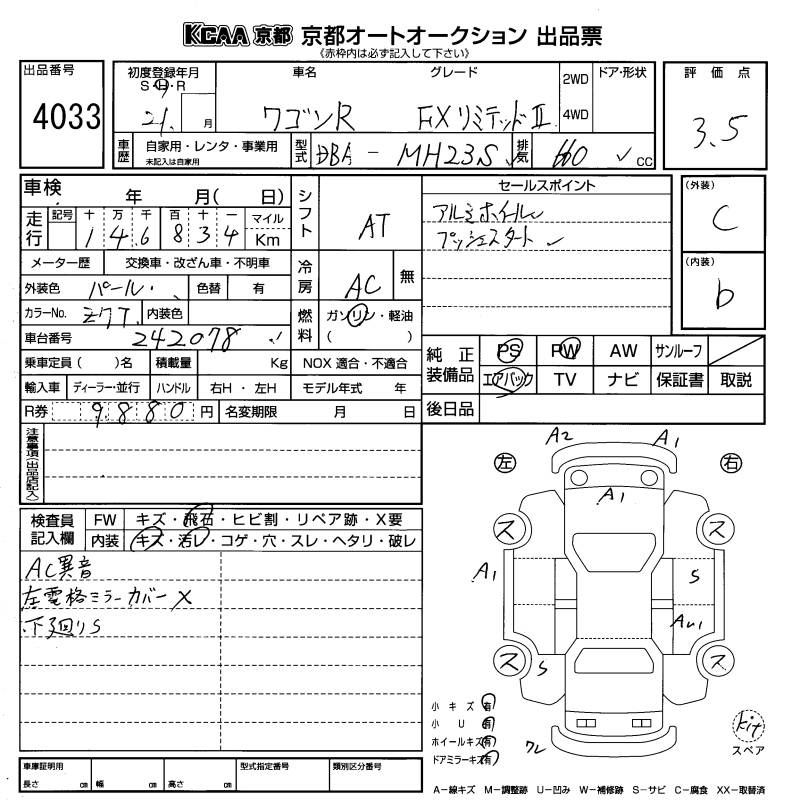 KCAA 京都 京都オートオークション 出品票
《赤枠内は必ず記入して下さい》
出品番号
4033
初度登録年月
S・H・R
21. 月
車名
ワゴンR
グレード
FXリミテッドⅡ
2WD
4WD
ドア・形状
評価点
3.5
車歴
自家用・レンタ・事業用
未記入は自家用
型式
DBA - MH23S
排気
660 cc
車検 年 月( 日)
走行
記号 十 万 千 百 十 一
1 4 6 8 3 4
マイル
Km
シフト
AT
メーター歴 交換車・改ざん車・不明車
外装色 パール・ 色替 有
カラーNo. Z7T 内装色
車台番号 242078
冷房
AC 無
燃料
ガソリン・軽油
( )
乗車定員( )名 積載量 Kg NOX 適合・不適合
輸入車 ディーラー・並行 ハンドル 右H・左H モデル年式 年
R券 9880 円 名変期限 月 日
セールスポイント
アルミホイール
プッシュスタート
(外装)
C
(内装)
b
純正装備品
PS PW AW サンルーフ
エアバック TV ナビ 保証書 取説
後日品
注意事項(出品店記入)
検査員記入欄
FW キズ・飛石・ヒビ割・リペア跡・X要
内装 キズ・汚レ・コゲ・穴・スレ・ヘタリ・破レ
AC異音
左電格ミラーカバーX
下廻りS
左 右
A2 A1
A1
ス ス
A1 S
AU1
ス ス
S
ワレ
小キズ(有)
小U(有)
ホイールキズ(有)
ドアミラーキズ(有)
kit
スペア
車庫証明用
長さ cm 幅 cm 高さ cm
型式指定番号
類別区分番号
A－線キズ M－調整跡 U－凹み W－補修跡 S－サビ C－腐食 XX－取替済